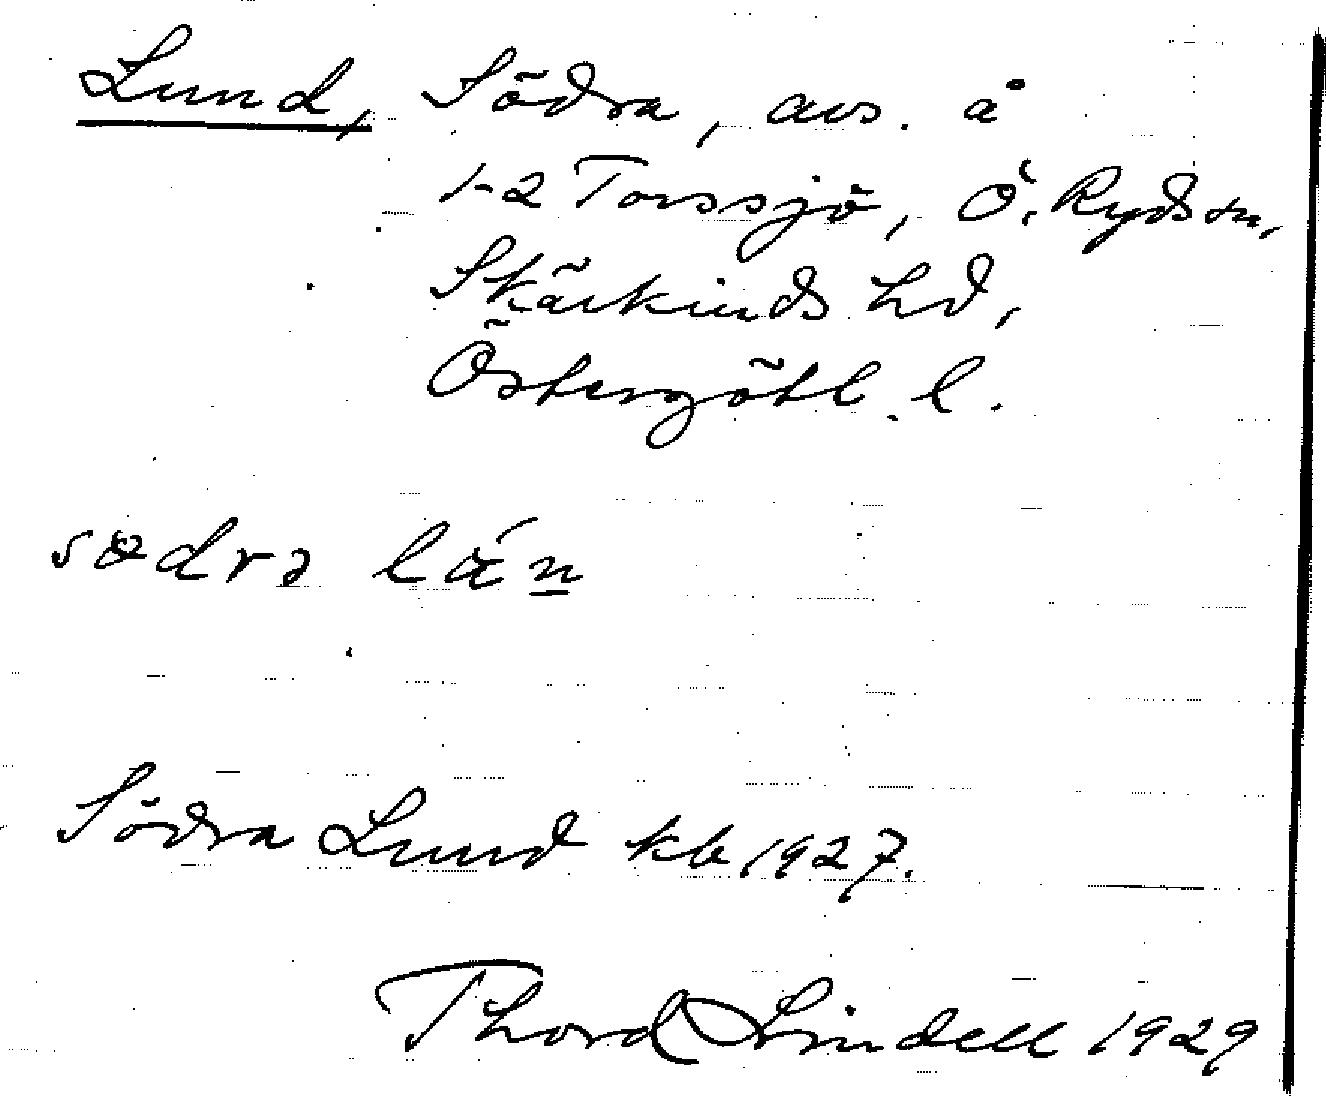 Lund, Södra, avs. å
1-2 Torssjö, Ö. Ryds sn,
Skärkinds hd,
Östergötl. l.
södra
Södra Lund kb 1927.
Thord Lindell 1929